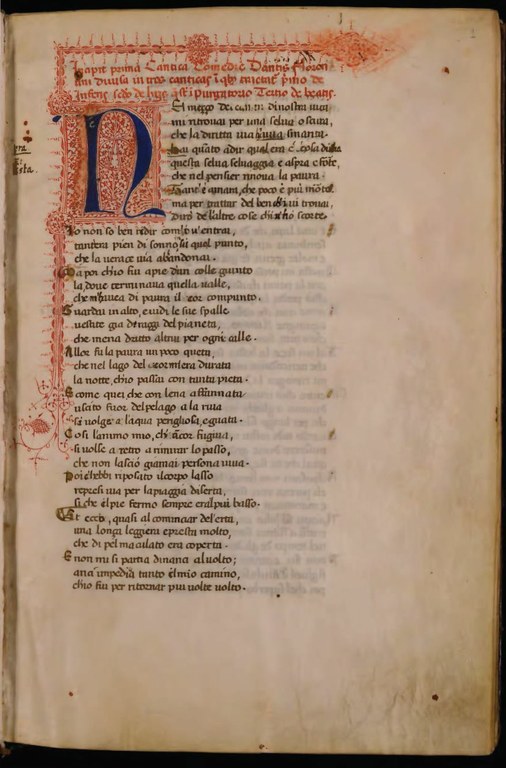 Incipit prima Cantica Comedie Dantis Floren
tini diuisa in tres canticas
Inferis. Purgatorio Tertio de beatis.
NEl mezzo del camin di nostra uita
mi ritrouai per una selua oscura,
che la diritta uia smarita.
Hai quāto adir qual era è cosa dura
questa selua seluaggia e aspra e forte,
che nel pensier rinoua la paura.
Tant'è amara, che poco è più morte
ma per trattar del ben ui trouai,
Dirò de l'altre cose ch' scorte.
Io non so ben ridir com'io u'entrai,
tant'era pien di sonno su quel punto,
che la uerace uia abbandonai.
Ma poi ch'io fui a piè d'un colle giunto
la doue terminaua quella ualle,
che m'hauea di paura il cor compunto.
Guardai in alto, e uidi le sue spalle
uestite gia de raggi del pianeta,
che mena dritto altrui per ogni calle.
Allor fu la paura un poco queta,
che nel lago del cor m'era durata
la notte, ch'io passai con tanta pieta.
E come quei che con lena affannata
uscito fuor del pelago a la riua
si uolge a l'aqua perigliosa, e guata.
Cosi l'animo mio, ch' ācor fugiua,
si uolse a retro a rimirar lo passo,
che non lasciò giamai persona uiua.
Poi c'hebbi riposato il corpo lasso
represi uia per la piaggia diserta,
si che 'l piè fermo sempre era'l piu basso.
Et ecco, quasi al cominciar de l'erta,
una lonza leggiera e presta molto,
che di pel maculato era coperta.
E non mi si partia dinanzi al uolto;
anzi impediua tanto el mio camino,
ch'io fui per ritornar piu uolte uolto.